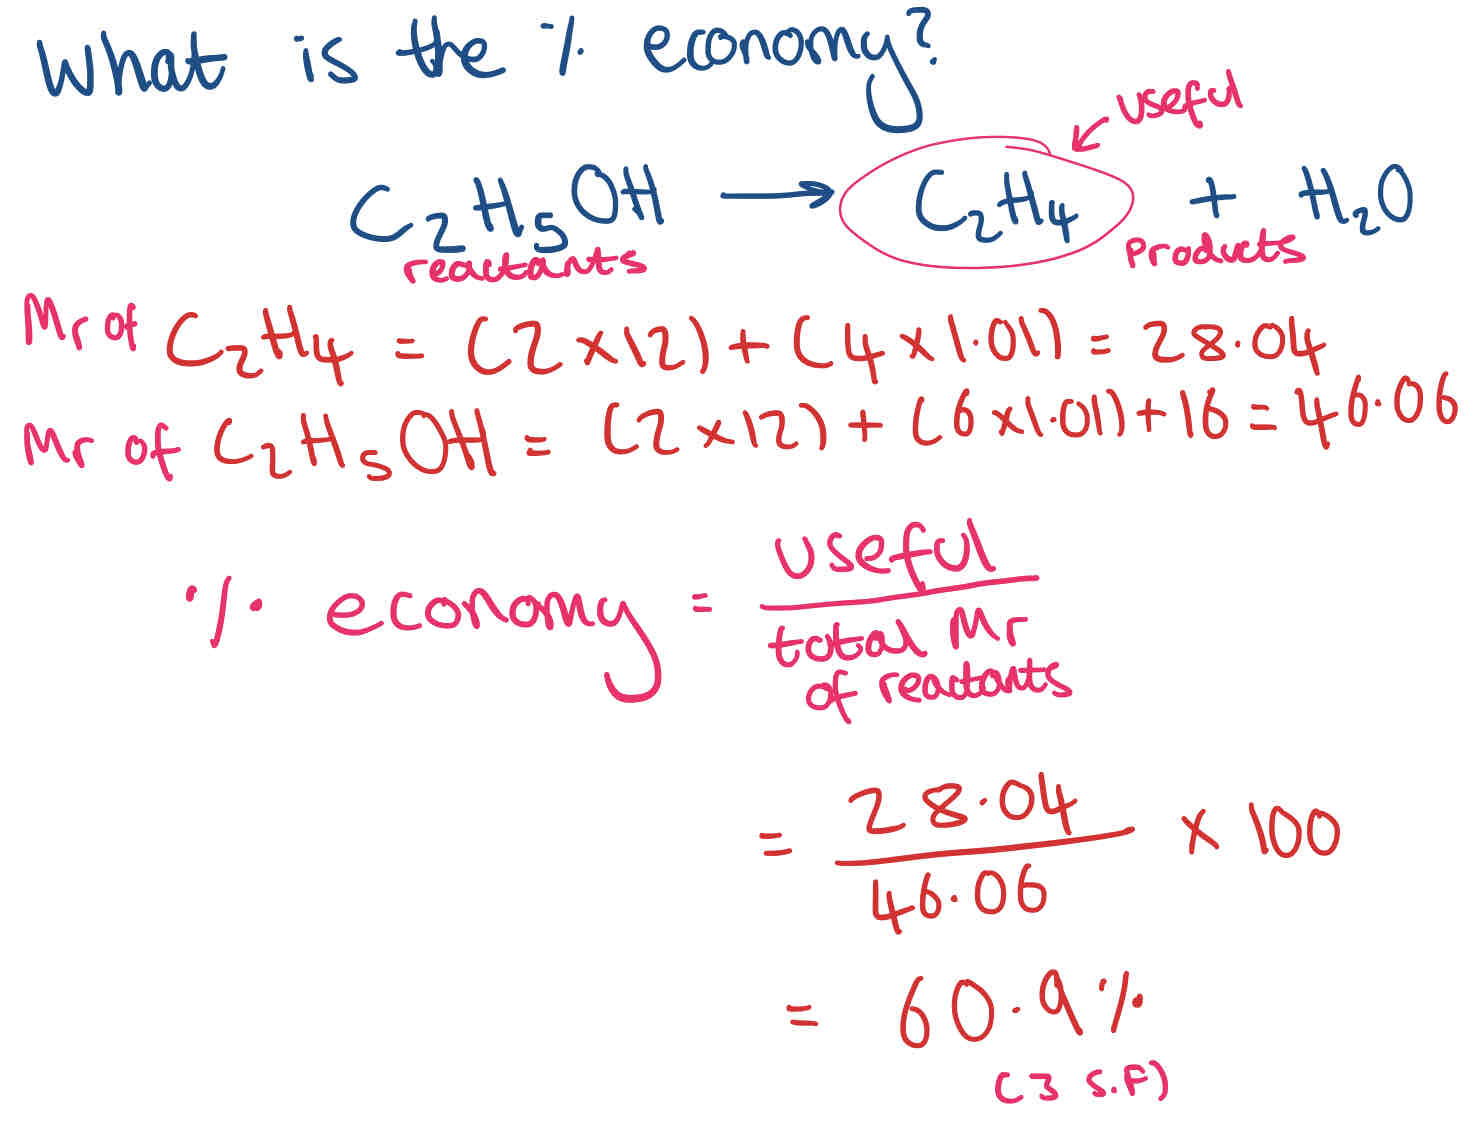 What is the % economy?
useful
C₂H₅OH → C₂H₄ + H₂O
reactants
Products
Mr of C₂H₄ = (2×12) + (4×1.01) = 28.04
Mr of C₂H₅OH = (2×12) + (6×1.01) + 16 = 46.06
% economy = useful
total Mr
of reactants
= 28.04 × 100
46.06
= 60.9%
(3 S.F)